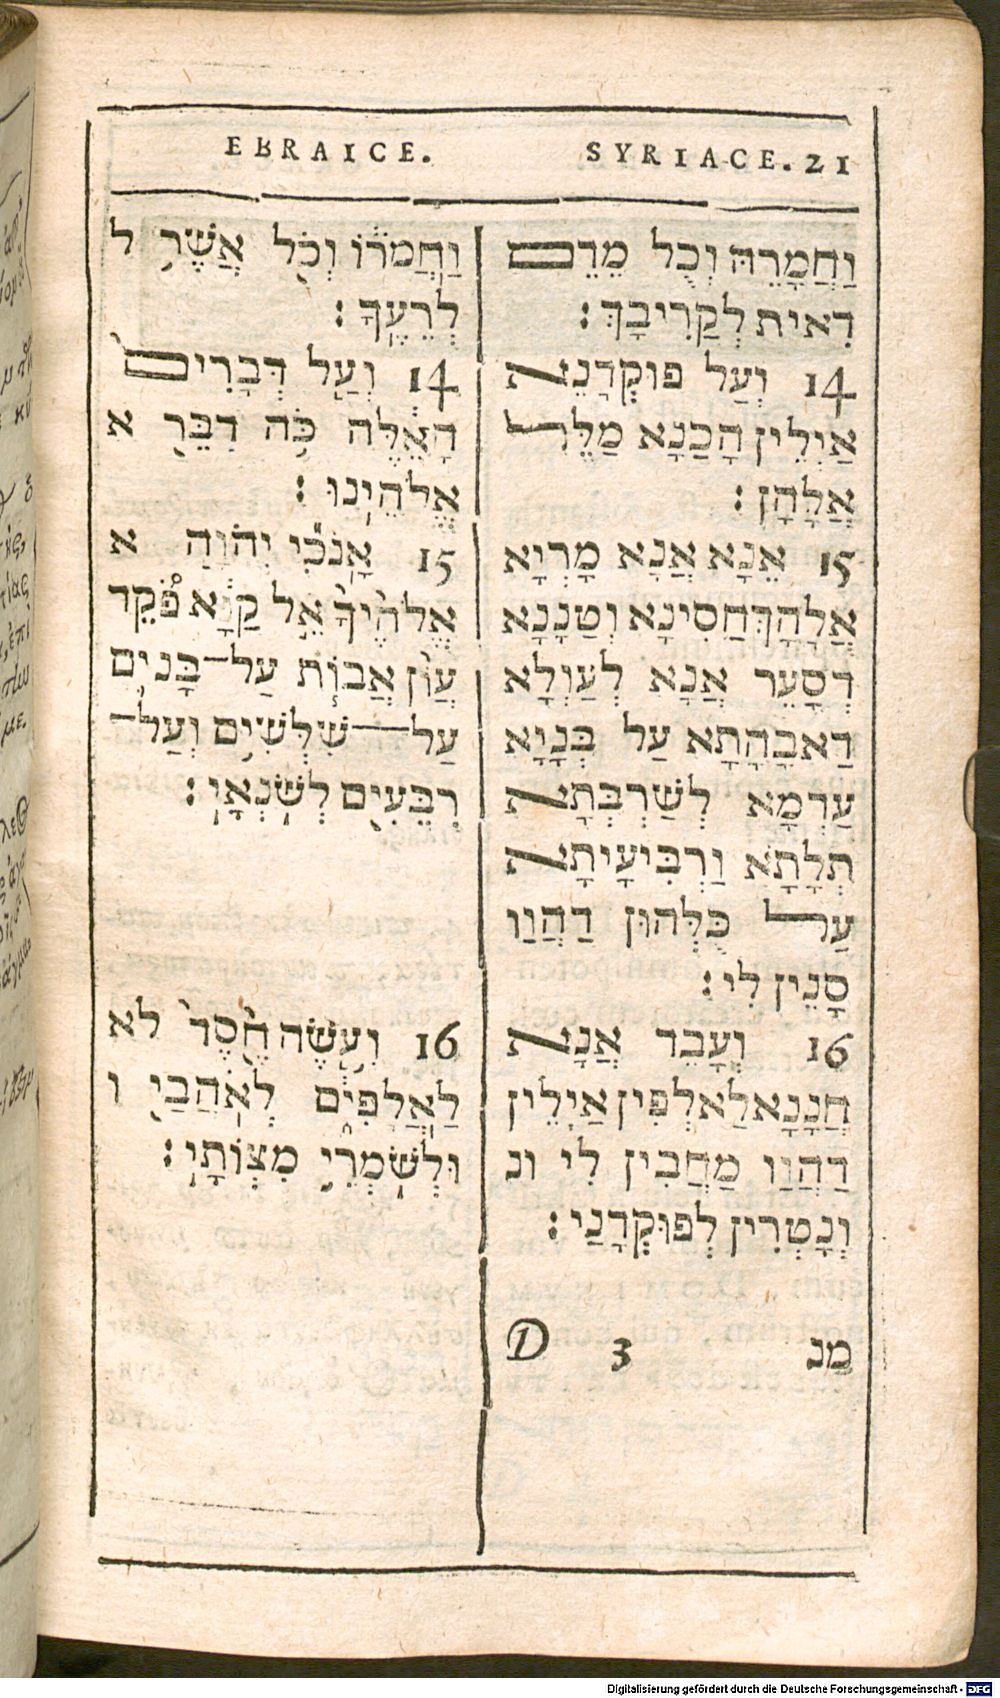 EBRAICE.
SYRIACE. 21
וַחֲמֹרוֹ וְכֹל אֲשֶׁר ל
לְרֵעֶךָ :
14 וְעַל דְּבָרִים
הָאֵלֶּה כֹּה דִבֵּר א
אֱלֹהֵינוּ :
15 אָנֹכִי יְהֹוָה א
אֱלֹהֶיךָ אֵל קַנָּא פֹּקֵד
עֲוֹן אֲבוֹת עַל־בָּנִים
עַל־שִׁלֵּשִׁים וְעַל־
רִבֵּעִים לְשֹׂנְאָי :
16 וְעֹשֶׂה חֶסֶד לא
לַאֲלָפִים לְאֹהֲבַי ו
וּלְשֹׁמְרֵי מִצְוֹתָי :
וַחֲמָרֵהּ וְכֻל מִדֵּם
דְאִית לְקַרִיבָךְ :
14 וְעַל פּוּקְדָנֵא
אַיִלֵין הָכַנָא מַלֵּל
אֲלָהָן :
15 אֶנָא אֲנָא מָרְיָא
אֲלָהָךְ חַסִינָא וְטַנָנָא
דְסָעֵר אֲנָא לְעַוְלָא
דַאבָהָתָא עַל בְּנַיָא
עַדְמָא לְשַׁרְבְּתָא
תְלָתָא וַרְבִּיעָיתָא
עַל כֻּלְּהוּן דַהֲוַו
סָנֵין לִי :
16 וְעָבֵד אֲנָא
חֲנָנָא לַאלְפִין אַיְלֵין
דַהֲוַו מַחֲבִין לִי ונ
וְנָטְרִין לְפוּקְדָנַי :
D 3 מנ
Digitalisierung gefördert durch die Deutsche Forschungsgemeinschaft - DFG